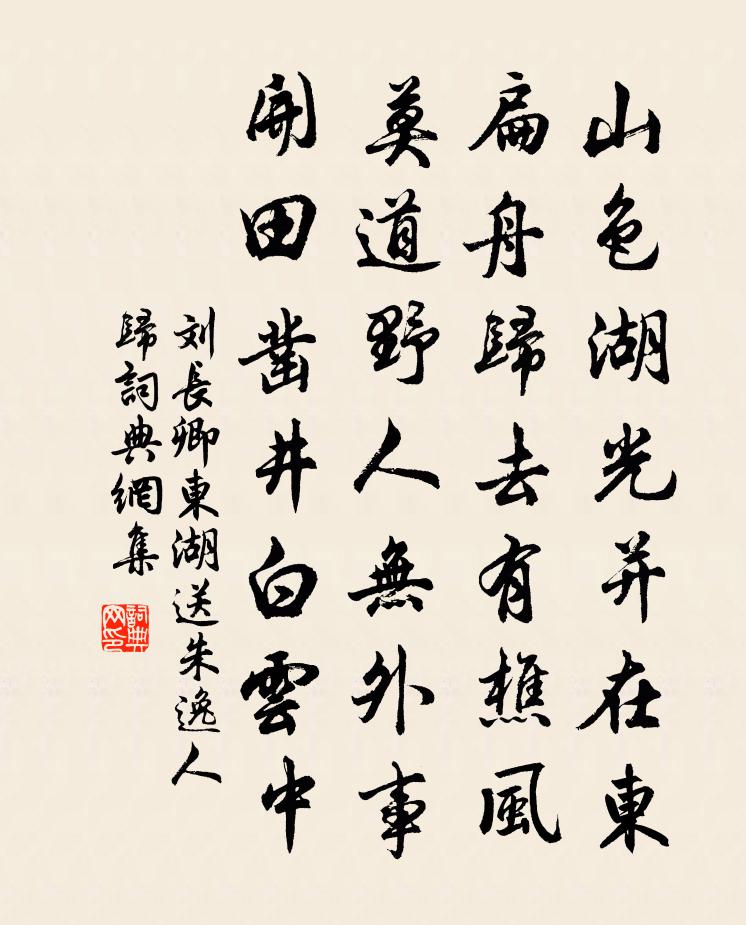 山色湖光并在東
扁舟歸去有樵風
莫道野人無外事
開田鑿井白雲中
刘長卿東湖送朱逸人
歸詞典網集
詞典网印